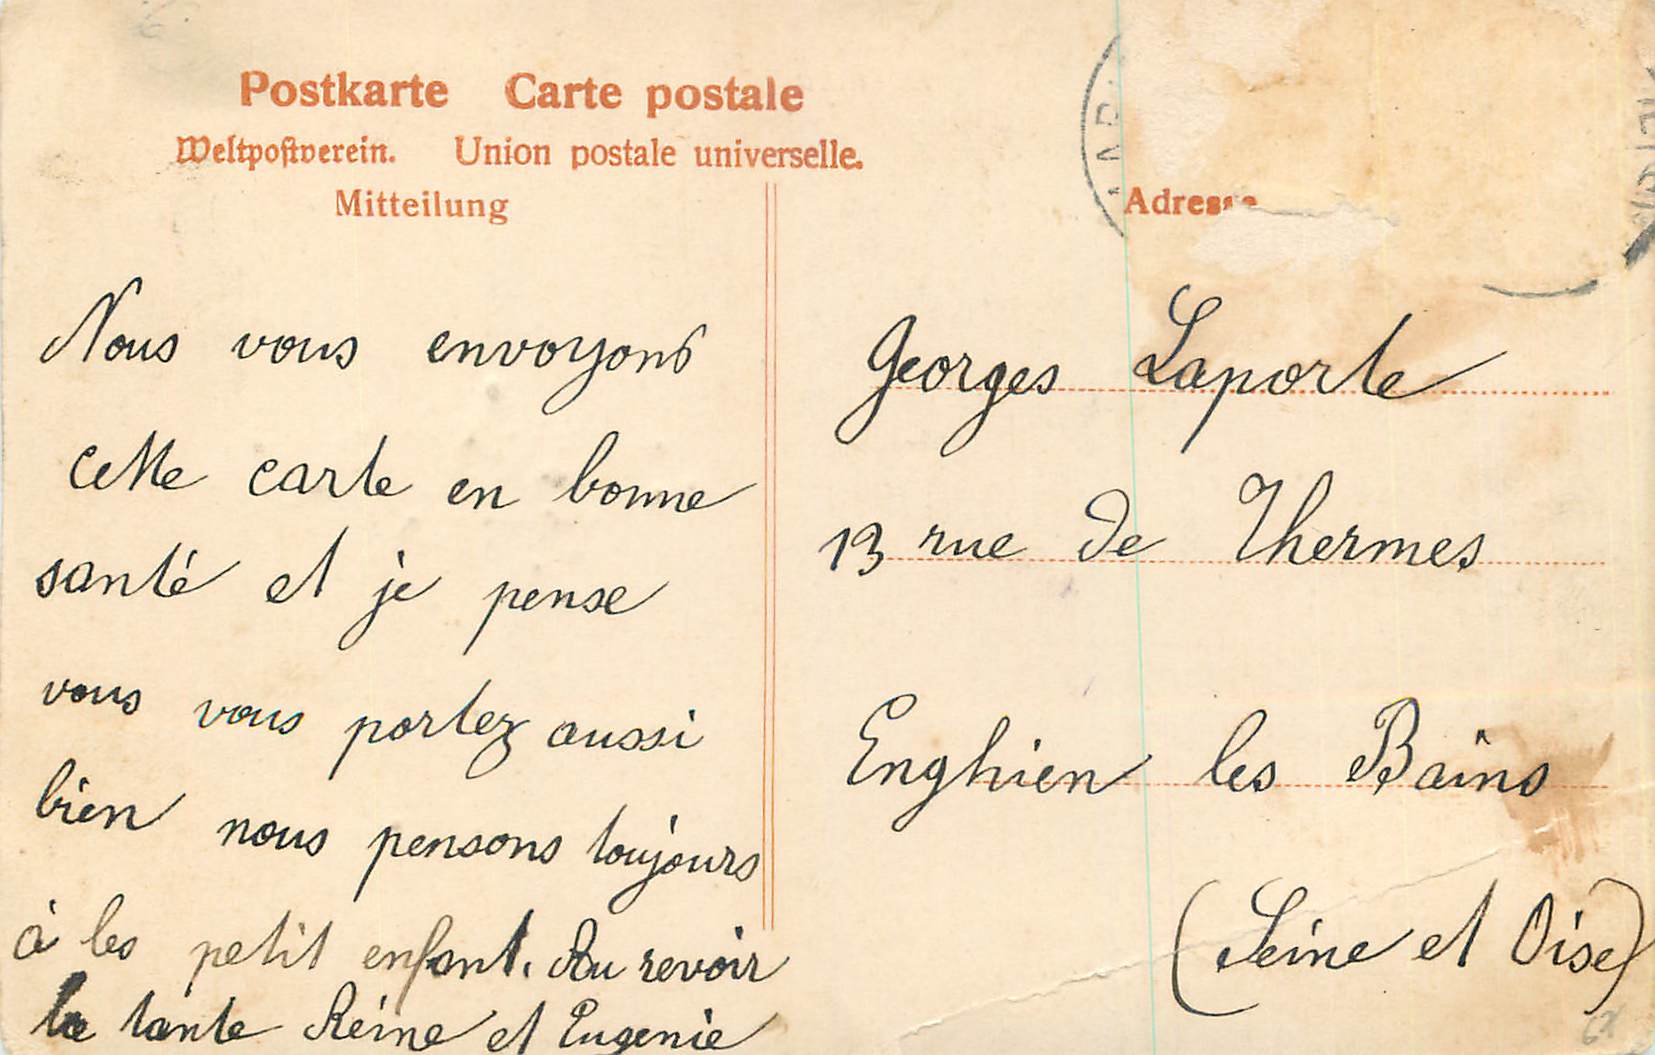 Postkarte Carte postale
Weltpostverein. Union postale universelle.
Mitteilung
Nous vous envoyons
cette carte en bonne
santé et je pense
vous vous portez aussi
bien nous pensons toujours
à les petit enfant. Au revoir
la tante Reine et Eugenie
Adresse
Georges Laporte
13 rue de Thermes
Enghien les Bains
(Seine et Oise)